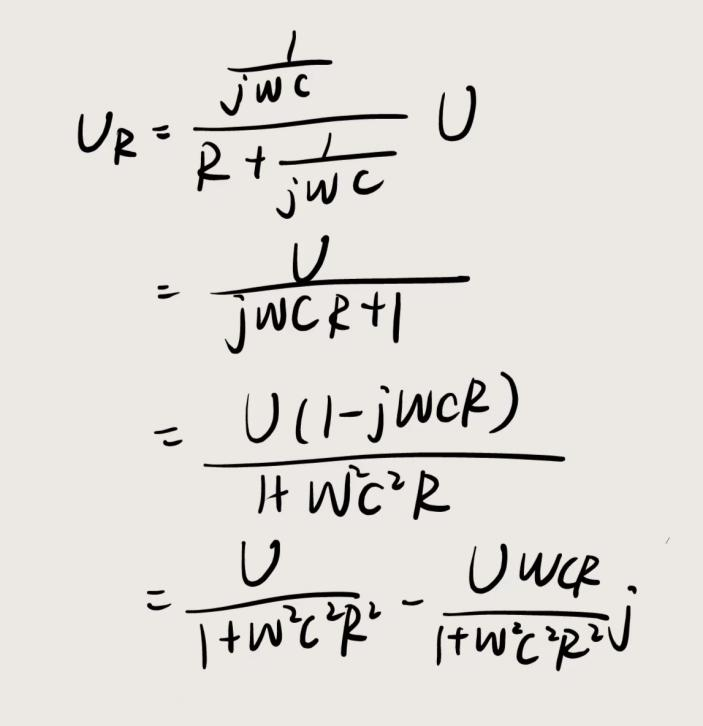 U_R = \frac{\frac{1}{jWC}}{R + \frac{1}{jWC}} U
= \frac{U}{jWCR+1}
= \frac{U(1-jWCR)}{1+W^2C^2R}
= \frac{U}{1+W^2C^2R^2} - \frac{UWCR}{1+W^2C^2R^2} j